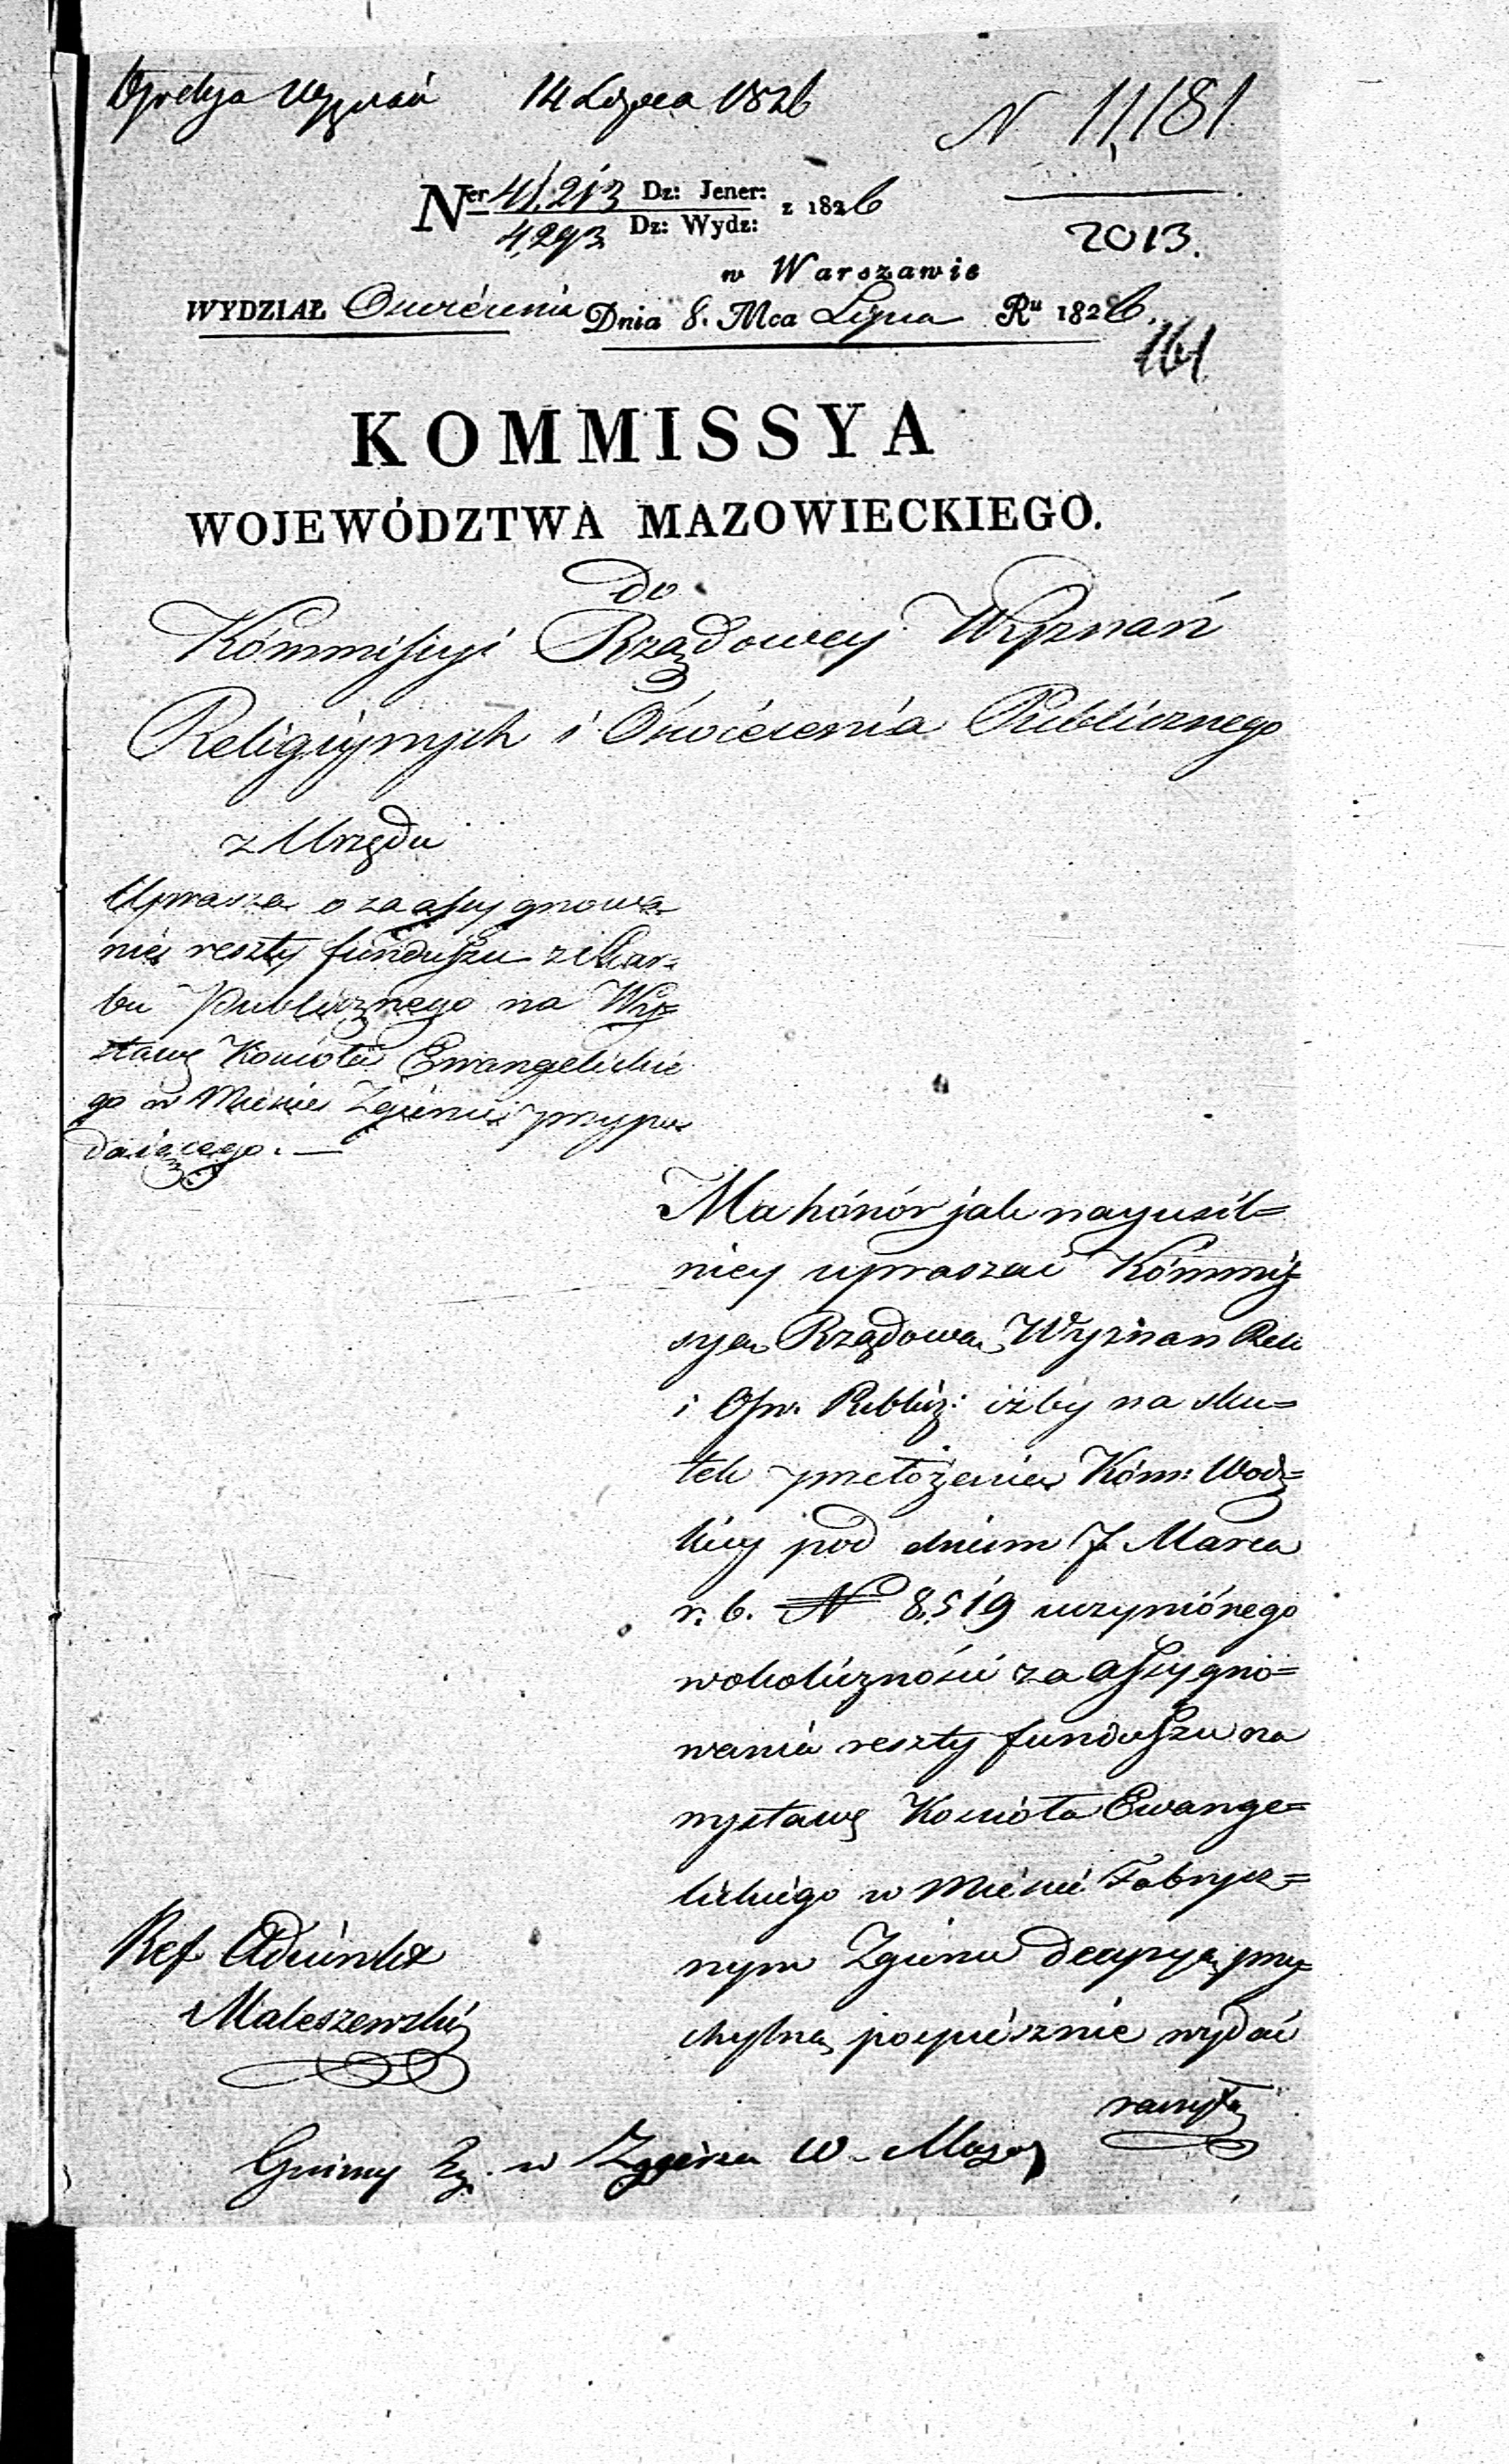 14 Lipca 1826
N 11,181
2013.
Ner 41,213 Dz: Jener: z 1826
4,293 Dz: Wydz:
w Warszawie
WYDZIAŁ Oswiécenia Dnia 8. Mca Lipca Ru 1826.
161
KOMMISSYA
WOJEWÓDZTWA MAZOWIECKIEGO.
do
Kómmissyi Rządowey Wyznań
Religiynych i Oswiecenia Publicznego
z Urzędu
Uprasza o zaassygnowa-
nie reszty funduszu z Skar-
bu Publicznego na Wy-
stawę Kościoła Ewangelickie
go w Mieście Zgierzu przypa
daiącego. —
Ma hónór jak nayusil=
niey upraszać Kómmis=
syą Rządową Wyznan Reli
i Ośw. Publicz: iżby na sku=
tek przełożenia Kóm: Wodz=
kiey pod dniem 7 Marca
r. b. N 8,519 uczynionego
w okoliczności zaassygno=
wania reszty funduszu na
wystawę Kościoła Ewange=
lickiego w Mieście Fabrycz=
nym Zgierzu decyzyą przy=
chylną pospiesznie wydać
raczyła
Ref Adiunkt
Maleszewski
Gminy Ew. w Zgierzu W. Mazow